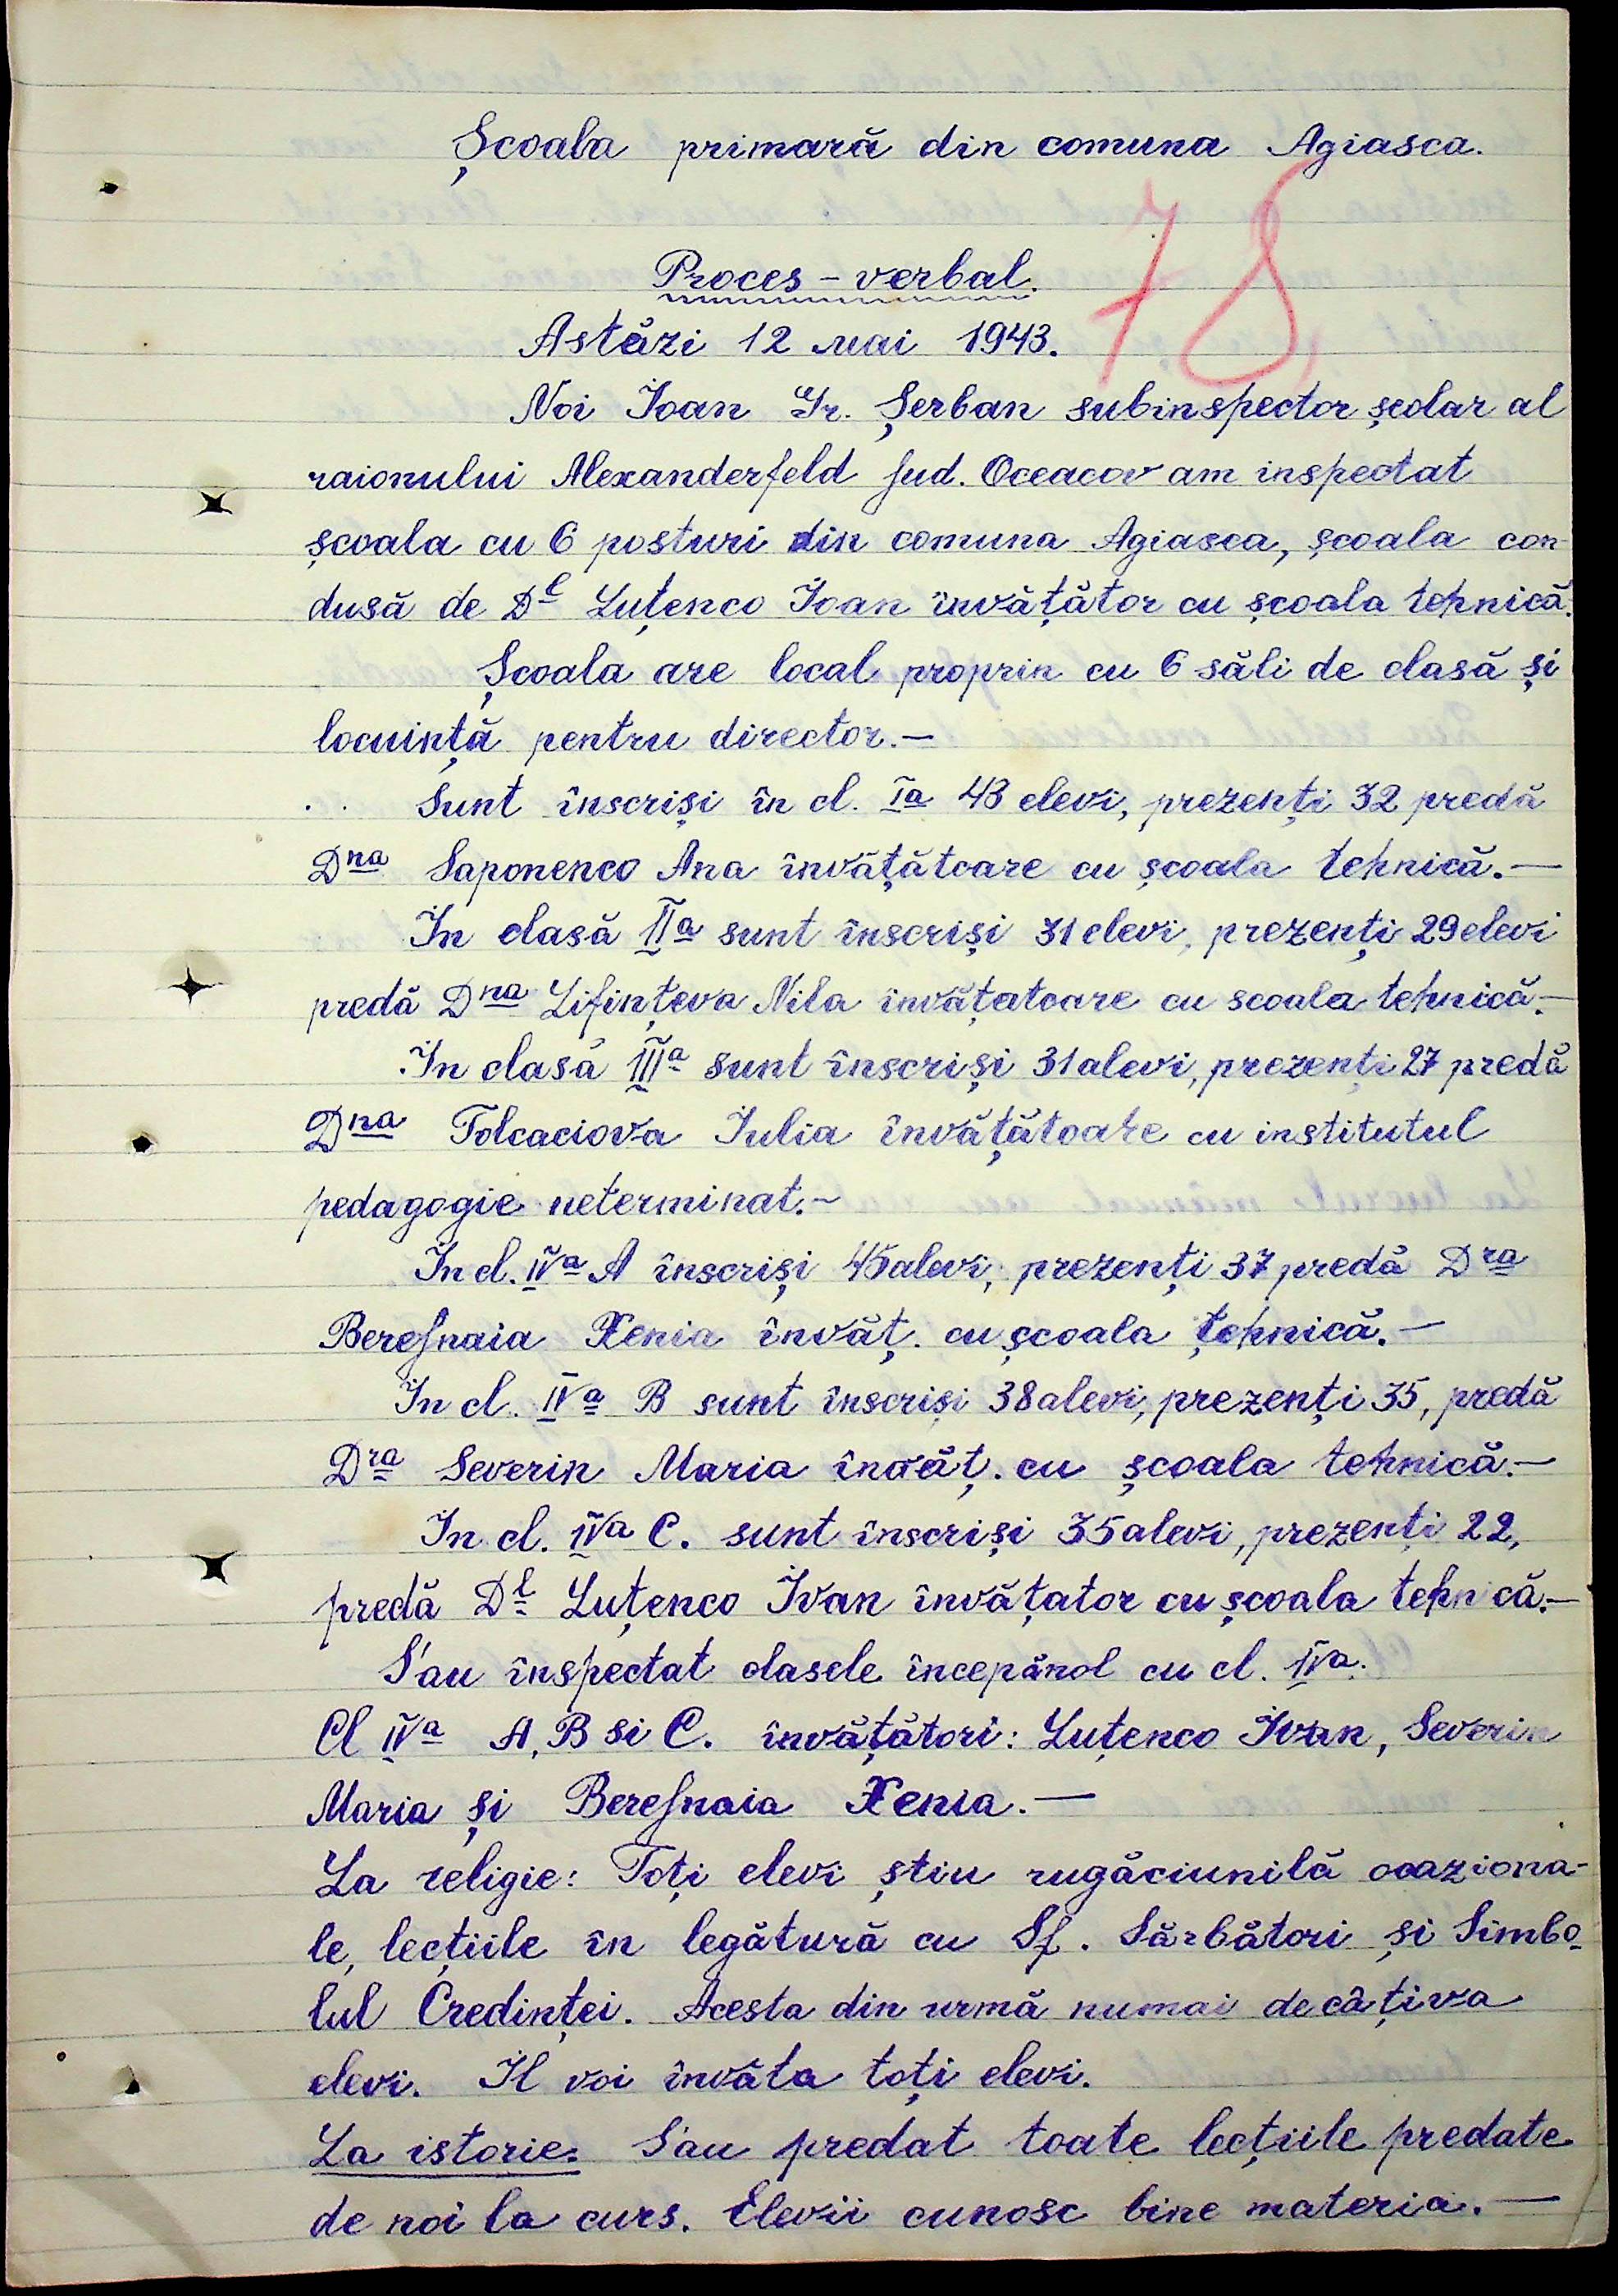 Școala primară din comuna Agiasca.
78
Proces-verbal.
Astăzi 12 mai 1943.
Noi Ioan Gr. Șerban subinspector școlar al
raionului Alexanderfeld jud. Oceacov am inspectat
școala cu 6 posturi din comuna Agiasca, școala con-
dusă de Dl Luțenco Ioan învățător cu școala tehnică.
Școala are local propriu cu 6 săli de clasă și
locuință pentru director.—
Sunt înscriși în cl. Ia 43 elevi, prezenți 32 predă
Dna Saponenco Ana învățătoare cu școala tehnică.—
In clasă IIa sunt înscriși 31 elevi, prezenți 29 elevi
predă Dna Lifințeva Nila învățatoare cu scoala tehnică.—
In clasă IIIa sunt înscriși 31 alevi, prezenți 27 predă
Dna Tolcaciova Iulia învățătoare cu institutul
pedagogic neterminat.—
In cl. IVa A înscriși 45 alevi, prezenți 37 predă Dra
Berejnaia Xenia învăț. cu școala țehnică.—
In cl. IVa B sunt înscriși 38 alevi, prezenți 35, predă
Dra Severin Maria învăț. cu școala tehnică.—
In cl. IVa C. sunt înscriși 35 alevi, prezenți 22,
predă Dl Luțenco Ivan învățator cu școala tehnică.—
S'au înspectat clasele începănd cu cl. IVa.
Cl IVa A, B si C. învățători: Luțenco Ivan, Severin
Maria și Berejnaia Xenia.—
La religie: Toți elevi știu rugăciunilă ocaziona-
le, lecțiile în legătură cu Sf. Sărbători și Simbo-
lul Credinței. Acesta din urmă numai de câțiva
elevi. Il voi învăta toți elevi.
La istorie. S'au predat toate lecțiile predate
de noi la curs. Elevii cunosc bine materia.—